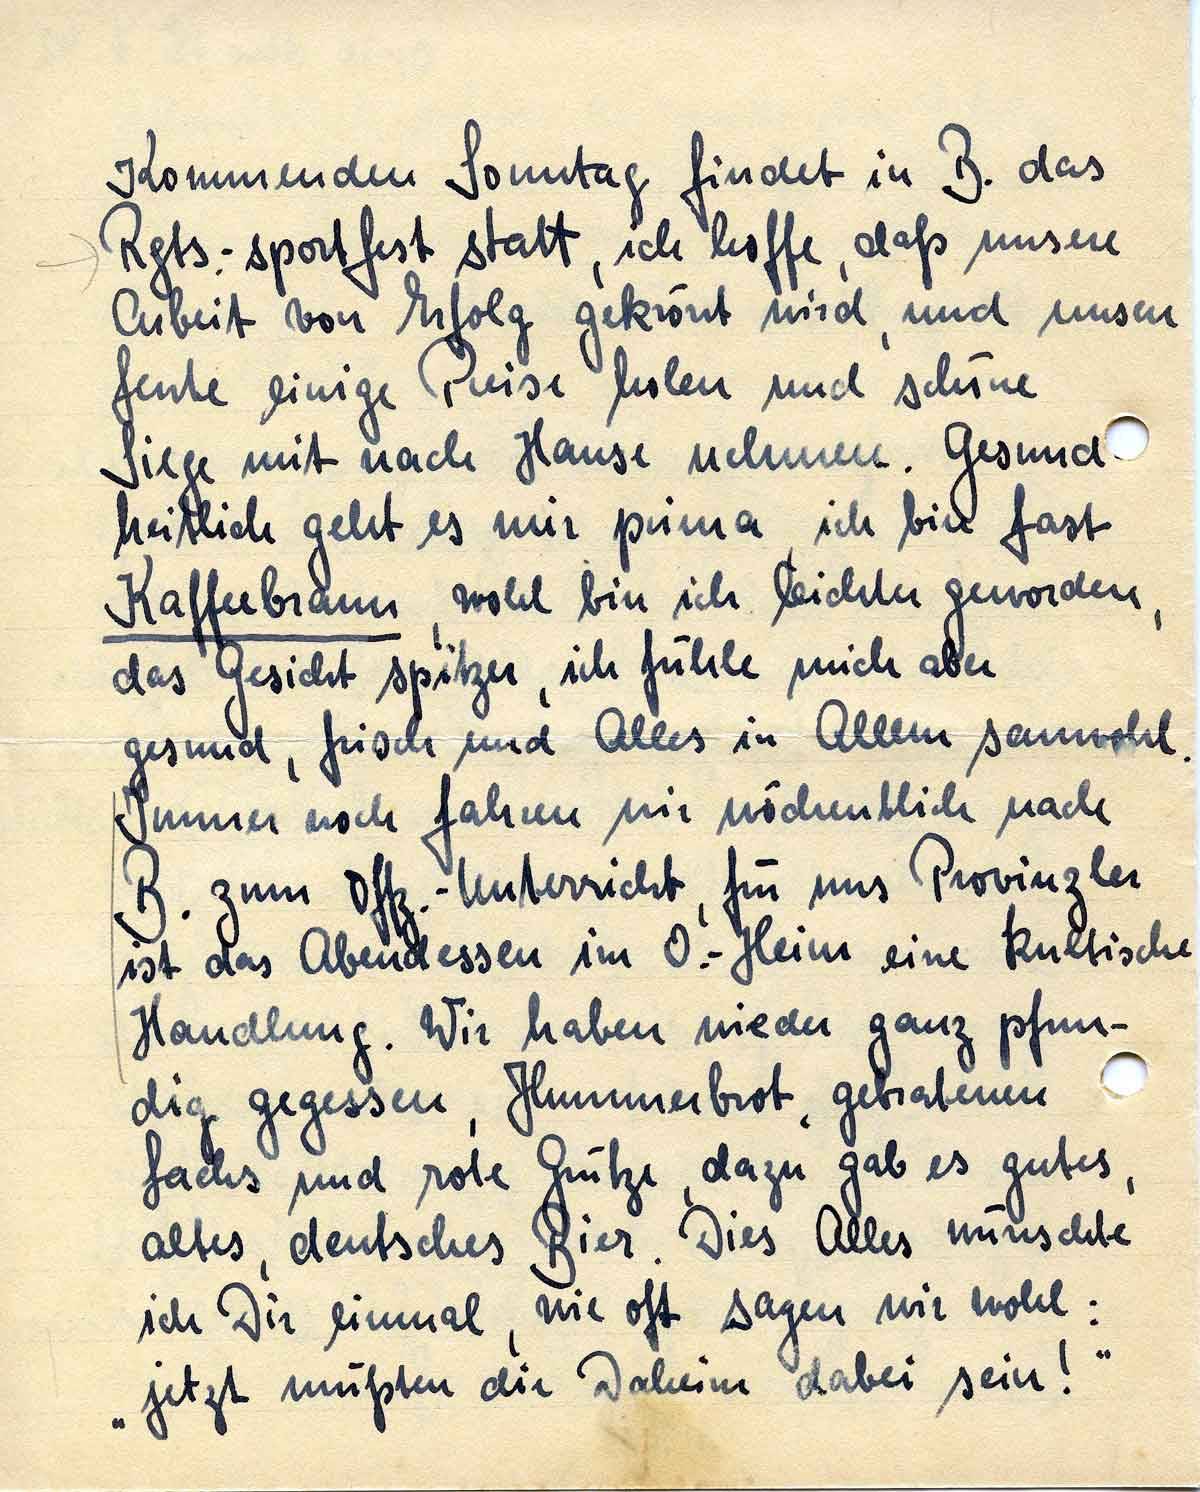 Kommenden Sonntag findet in B. das
Rgts.-sportfest statt, ich hoffe, daß unsere
Arbeit von Erfolg gekrönt wird, und unsere
Leute einige Preise holen und schöne
Siege mit nach Hause nehmen. Gesund
heitlich geht es mir prima, ich bin fast
Kaffeebraun, wohl bin ich leichter geworden,
das Gesicht spitzer, ich fühle mich aber
gesund, frisch und Alles in Allem sauwohl.
Immer noch fahren wir wöchentlich nach
B. zum Offz.-Unterricht, für uns Provinzler
ist das Abendessen im O.-Heim eine kultische
Handlung. Wir haben wieder ganz pfun-
dig gegessen, Hummerbrot, gebratenen
Lachs und rote Grütze, dazu gab es gutes,
altes, deutsches Bier. Dies Alles wünschte
ich Dir einmal, wie oft sagen wir wohl:
„jetzt müßten die Daheim dabei sein!"